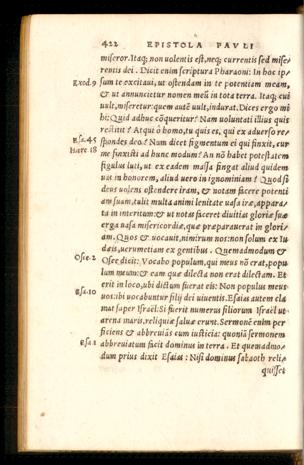 422 EPISTOLA PAVLI
miseror. Itaq; non uolentis est, neq; currentis sed mise-
rentis dei. Dicit enim scriptura Pharaoni: In hoc ip-
Exod. 9 sum te excitaui, ut ostendam in te potentiam meam,
& ut annuncietur nomen meũ in tota terra. Itaq; cui
uult, miseretur: quem autẽ uult, indurat. Dices ergo mi
hi: Quid adhuc cõqueritur? Nam uoluntati illius quis
resistit? Atqui ô homo, tu quis es, qui ex aduerso re-
Esa. 45 spondes deo? Num dicet figmentum ei qui finxit, cur
Hiere 18 me finxisti ad hunc modum? An nõ habet potestatem
figulus luti, ut ex eadem massa fingat aliud quidem
uas in honorem, aliud uero in ignominiam? Quod si
deus uolens ostendere iram, & notam facere potenti
am suam, tulit multa animi lenitate uasa iræ, appara-
ta in interitum: & ut notas faceret diuitias gloriæ suæ
erga uasa misericordiæ, quæ præparauerat in glori-
am. Quos & uocauit, nimirum nos: non solum ex Iu-
dæis, uerumetiam ex gentibus. Quemadmodum &
Osee. 2 Osee dicit: Vocabo populum, qui meus nõ erat, popu-
lum meum: & eam quæ dilecta non erat dilectam. Et
erit in loco, ubi dictum fuerat eis: Non populus meus
Esa. 10 uos: ibi uocabuntur filij dei uiuentis. Esaias autem cla
mat super Israël: Si fuerit numerus filiorum Israël ut
arena maris, reliquiæ saluæ erunt. Sermonẽ enim per
ficiens & abbreuiãs cum iusticia: quoniã sermonem
Esa. 1 abbreuiatum faciet dominus in terra. Et quemadmo-
dum prius dixit Esaias: Nisi dominus sabaoth reli-
quisset